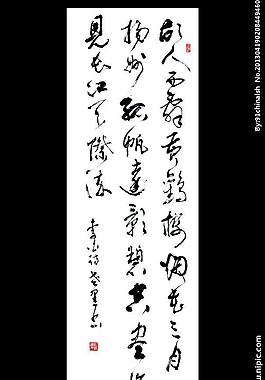 故人西辞黄鹤楼烟花三月
扬州孤帆远影碧空尽唯
见长江天际流
李白诗
By:91chinaish No.20130419020844946​0
www.nipic.com